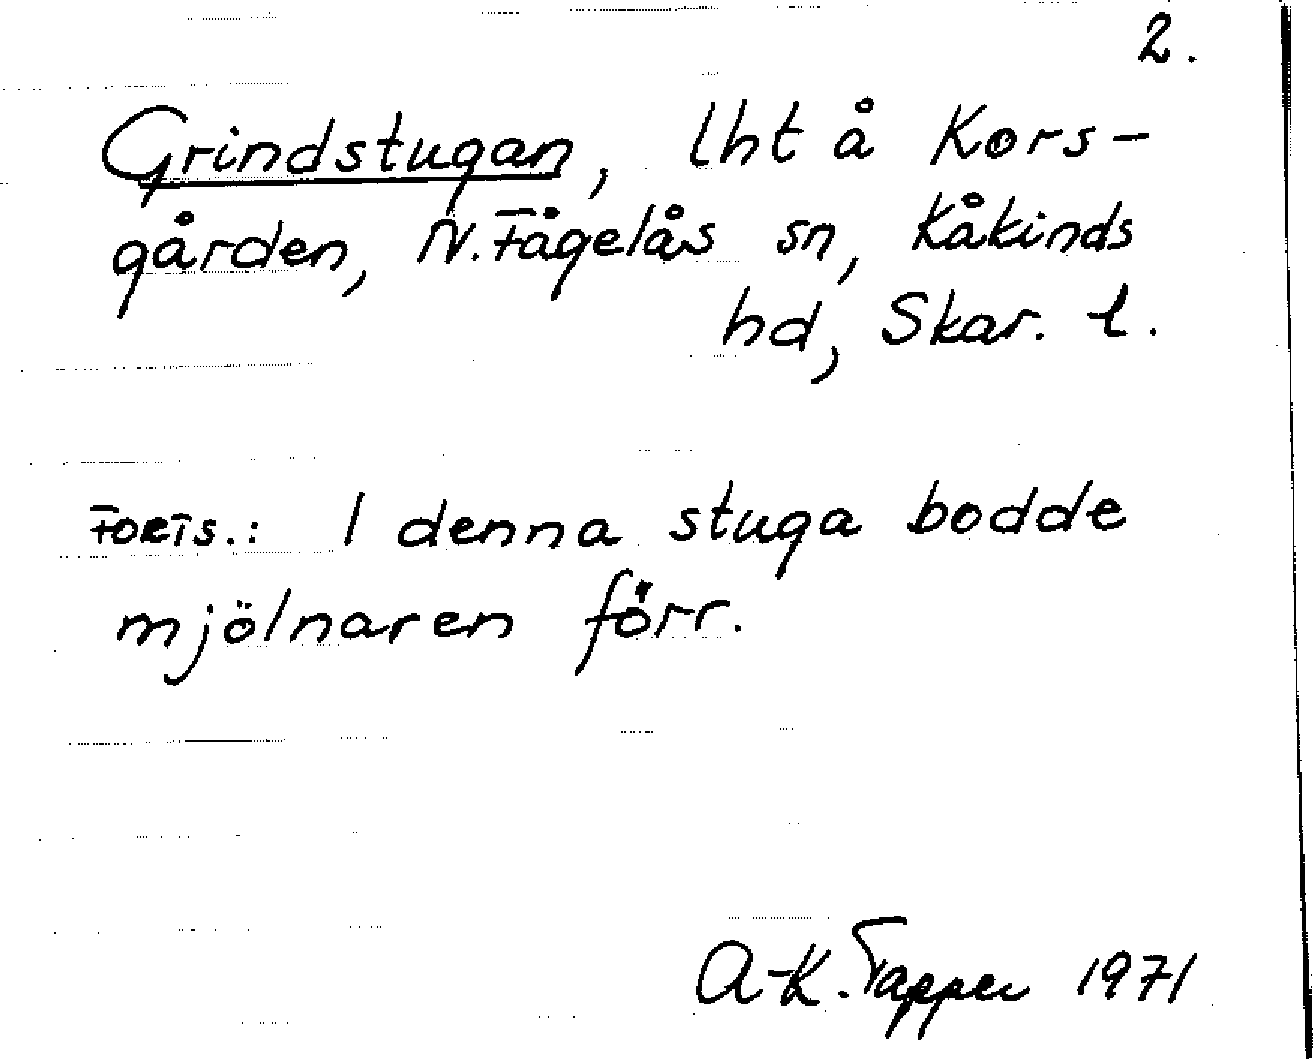 2.
Grindstugan, lht å Kors-
gården, N. Fågelås sn, Kåkinds
hd, Skar. l.
FORTS.: I denna stuga bodde
mjölnaren förr.
A-K. Tapper 1971